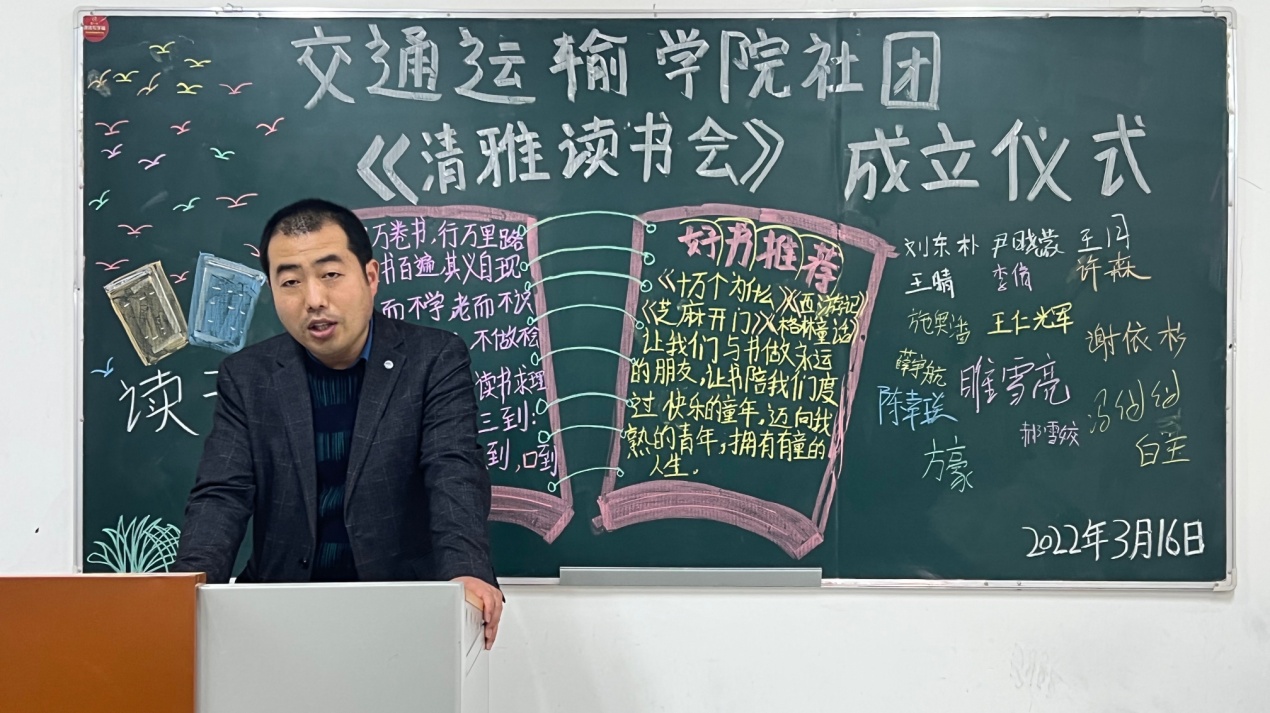 交通运输学院社团
《清雅读书会》成立仪式
万卷书,行万里路
书百遍,其义自现
而不学 老而不识
不做
读书求理
三到:
到,口到
读
好书推荐
《十万个为什么》《西游记》
《芝麻开门》《格林童话》
让我们与书做永远
的朋友,让书陪我们度
过快乐的童年,迈向成
熟的青年,拥有有童的
人生.
刘东朴 尹晓蒙
王晴
许森
王仁光军
谢依杉
薛宇航
睢雪亮
郝雪姣
方豪
2022年3月16日